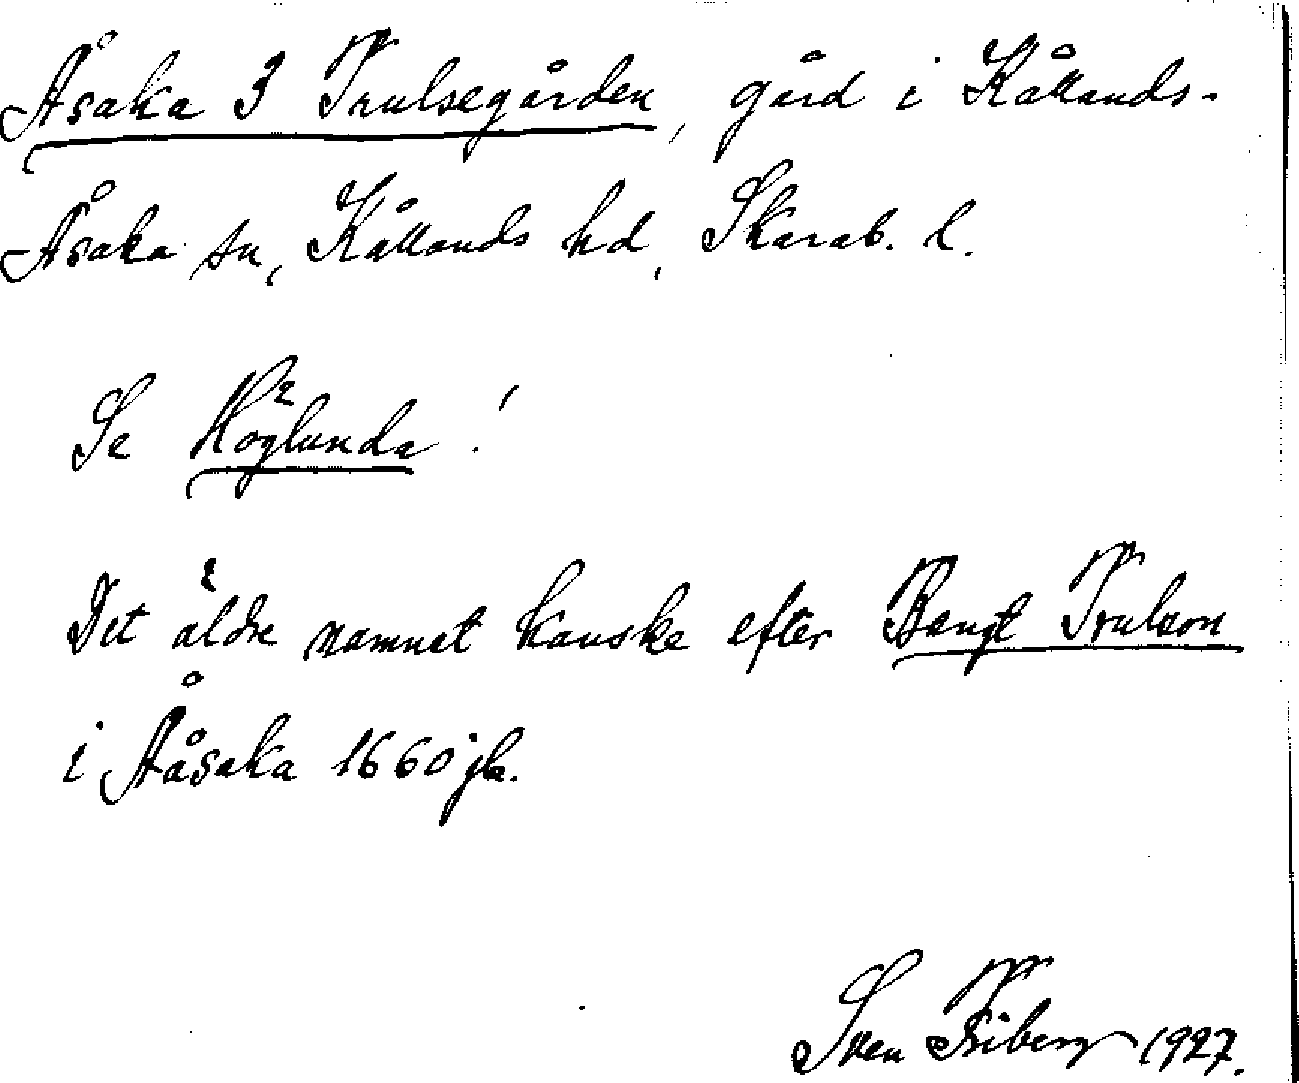 Åsaka 3 Trulsegården, gård i Kållands-
Åsaka sn, Kållands hd, Skarab. l.
Se Höglunda!
Det äldre namnet kanske efter Bengt Trulson
i Ååsaka 1660 jb.
Sven Friberg 1927.